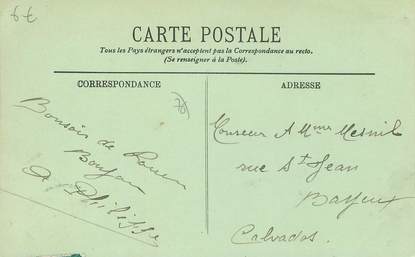 CARTE POSTALE
Tous les Pays étrangers n'acceptent pas la Correspondance au recto.
(Se renseigner à la Poste).
CORRESPONDANCE
Bonsoir de Rouen
A Philippe
ADRESSE
Monsieur A Mme Mesnil
rue St Jean
Bayeux
Calvados.